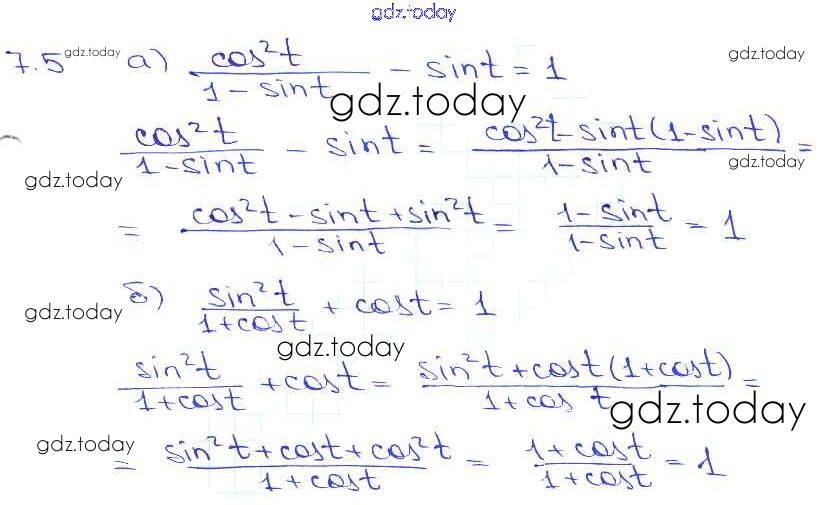 gdz.today
7.5 gdz.today а) cos²t / (1 - sint) - sint = 1 gdz.today
gdz.today
cos²t / (1 - sint) - sint = (cos²t - sint(1 - sint)) / (1 - sint) =
gdz.today gdz.today
= (cos²t - sint + sin²t) / (1 - sint) = (1 - sint) / (1 - sint) = 1
gdz.today б) sin²t / (1 + cost) + cost = 1
gdz.today
sin²t / (1 + cost) + cost = (sin²t + cost(1 + cost)) / (1 + cos t) =
gdz.today
gdz.today
= (sin²t + cost + cos²t) / (1 + cost) = (1 + cost) / (1 + cost) = 1